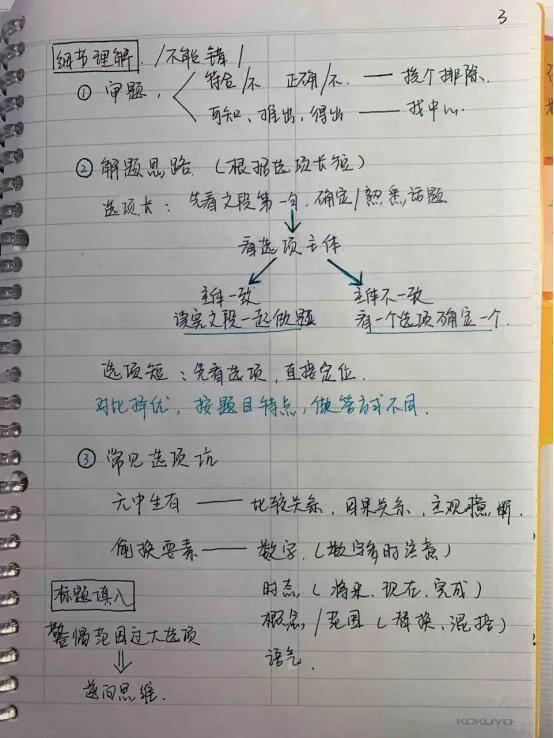 3
细节理解 /不能错/
① 审题, 符合/不 正确/不 —— 挨个排除.
可知、推出、得出 —— 找中心.
② 解题思路 (根据选项长短)
选项长: 先看文段第一句,确定/熟悉话题
看选项主体
主体一致 主体不一致
读完文段一起做题 看一个选项确定一个.
选项短: 先看选项,直接定位.
对比择优, 按题目特点, 做答方式不同.
③ 常见选项坑
无中生有 —— 比较关系、因果关系、主观臆断.
偷换要素 —— 数字 (数字多时注意)
时态 (将来、现在、完成)
概念/范围 (替换、混搭)
语气.
标题填入
警惕范围过大选项
逆向思维.
KOKUYO